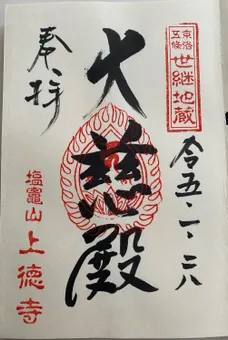 京洛
五條
世継地蔵
奉拝
大慈殿
令五・一・二八
塩竈山
上徳寺